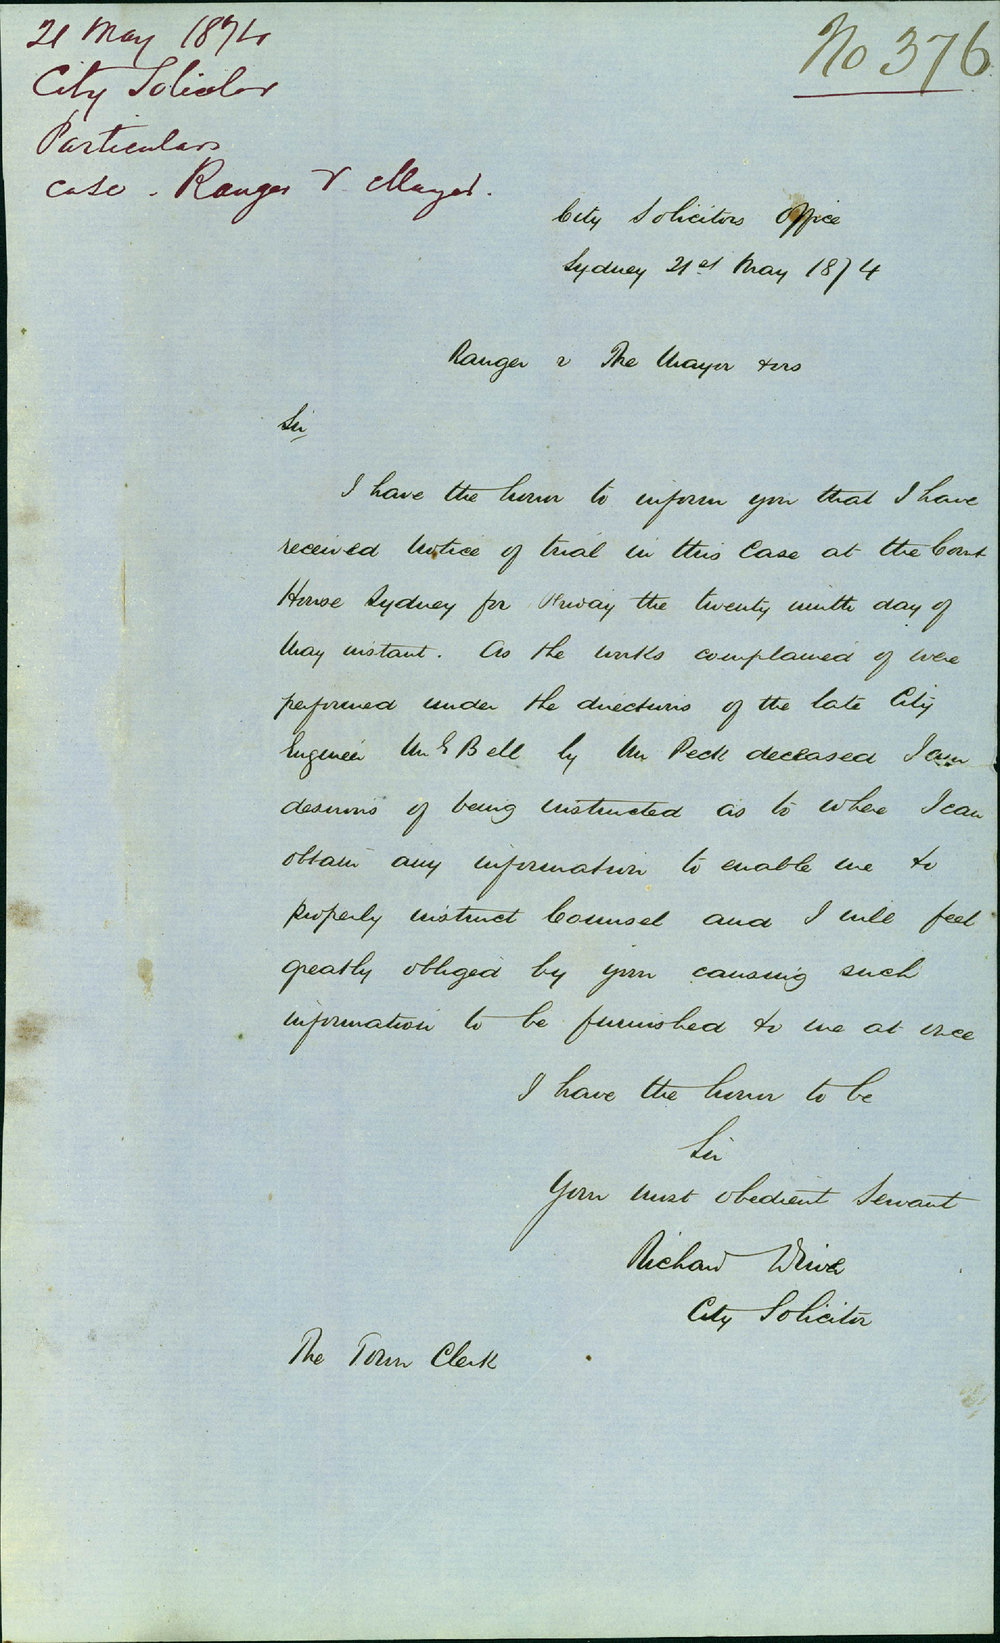 21 May 1874
No 376
City Solicitor
Particulars
case - Ranger v Mayor.
City Solicitors Office
Sydney 21st May 1874
Ranger v The Mayor &ors
Sir
I have the honor to inform you that I have
received notice of trial in this Case at the Court
House Sydney for Friday the twenty ninth day of
May instant. As the works complained of were
performed under the directions of the late City
Engineer Mr E Bell by Mr Peck deceased I am
desirous of being instructed as to where I can
obtain any information to enable me to
properly instruct Counsel and I will feel
greatly obliged by your causing such
information to be furnished to me at once
I have the honor to be
Sir
Your most obedient Servant
Richard Driver
City Solicitor
The Town Clerk